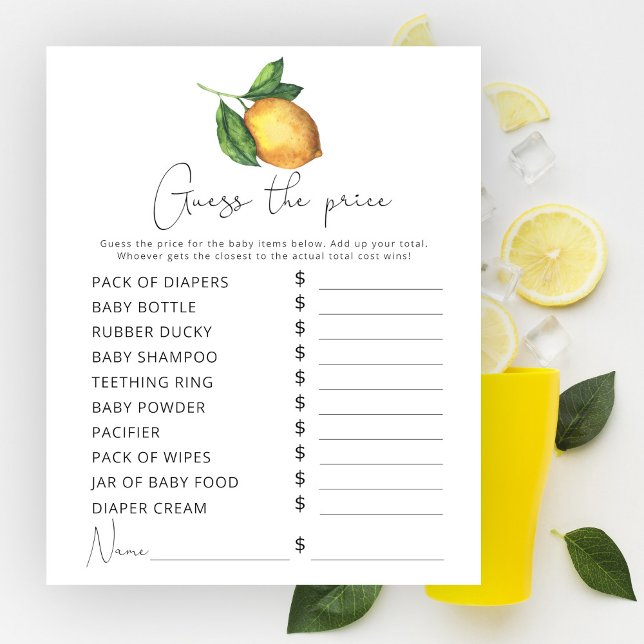 Guess the price
Guess the price for the baby items below. Add up your total.
Whoever gets the closest to the actual total cost wins!
PACK OF DIAPERS $
BABY BOTTLE $
RUBBER DUCKY $
BABY SHAMPOO $
TEETHING RING $
BABY POWDER $
PACIFIER $
PACK OF WIPES $
JAR OF BABY FOOD $
DIAPER CREAM $
Name $